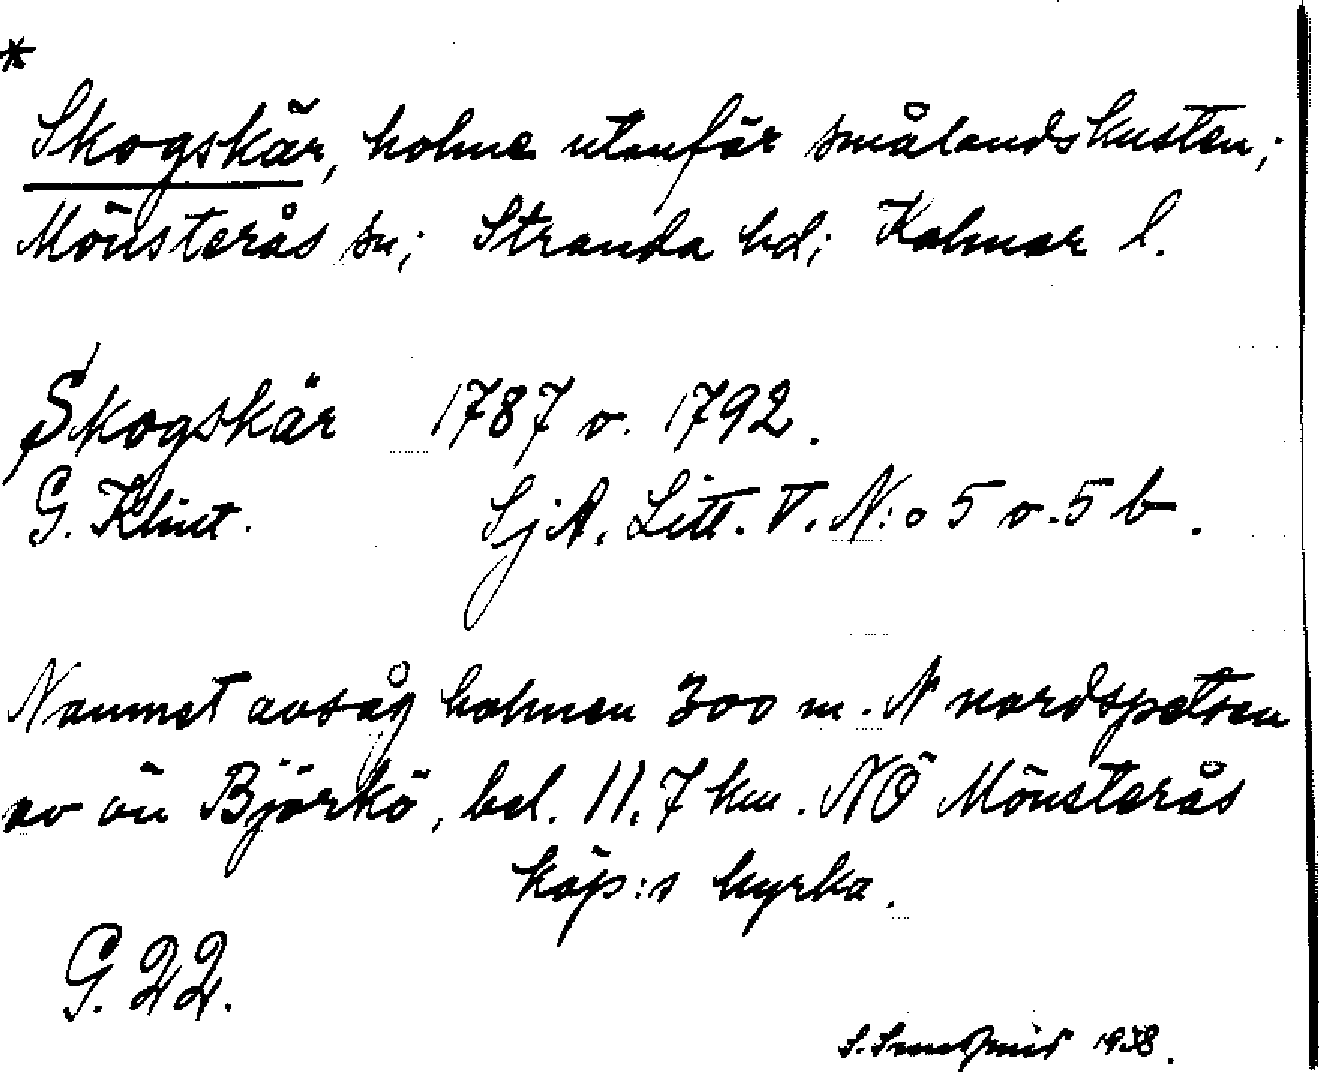 *
Skogskär, holme utanför smålandskusten;
Mönsterås sn; Stranda hd; Kalmar l.
Skogskär 1787 o. 1792.
G. Klint. SjA. Litt. V. N:o 5 o. 5 b.
Namnet avsåg holmen 300 m. N nordspetsen
av ön Björkö, bel. 11.7 km. NÖ Mönsterås
köp:s kyrka.
G. 22.
S. 1938.